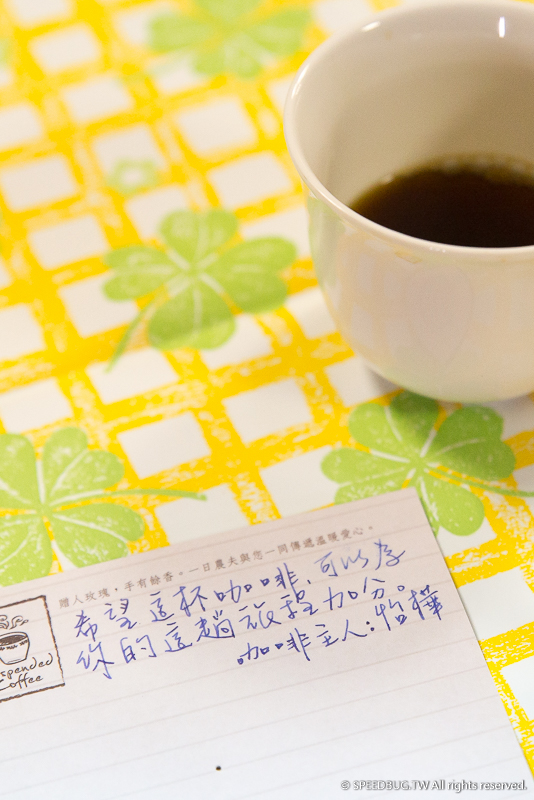 贈人玫瑰，手有餘香。一日農夫與您一同傳遞溫暖愛心。
希望這杯咖啡,可以為
你的這趟旅程加分。
咖啡主人:怡樺
Suspended
Coffee
© SPEEDBUG.TW All rights reserved.